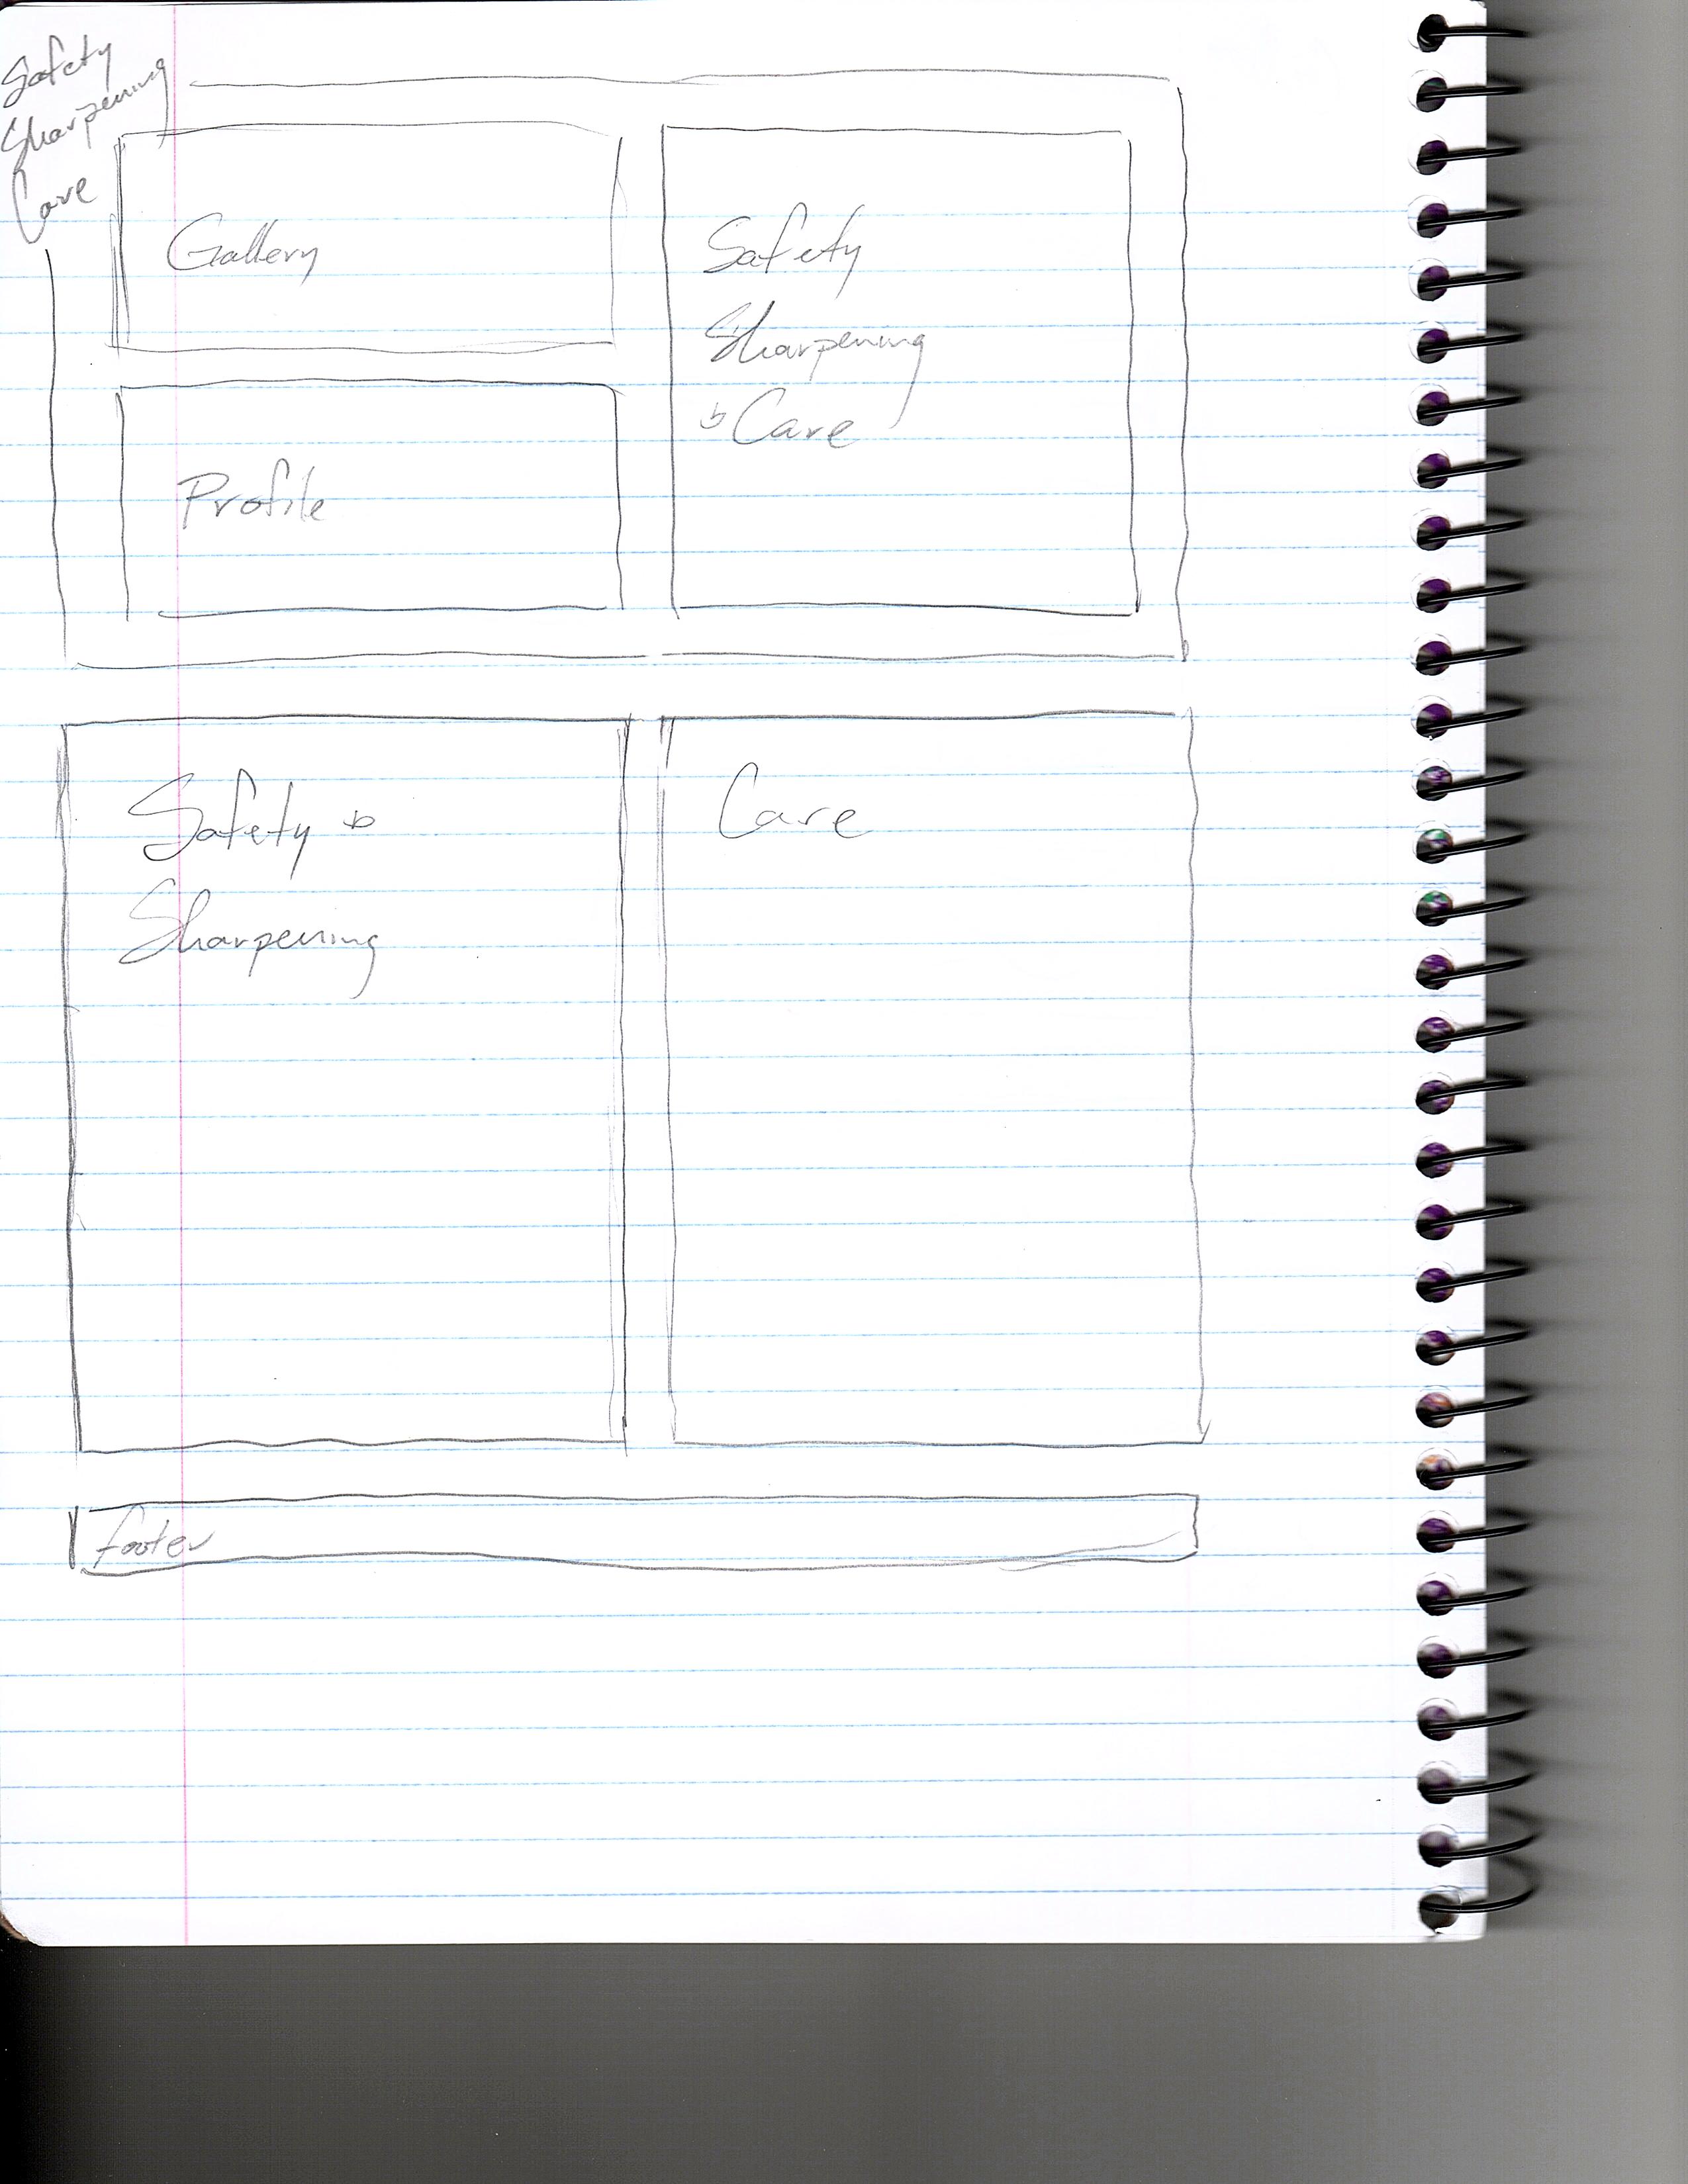 Safety
Sharpening
Care
Gallery
Safety
Sharpening
& Care
Profile
Safety &
Sharpening
Care
footer